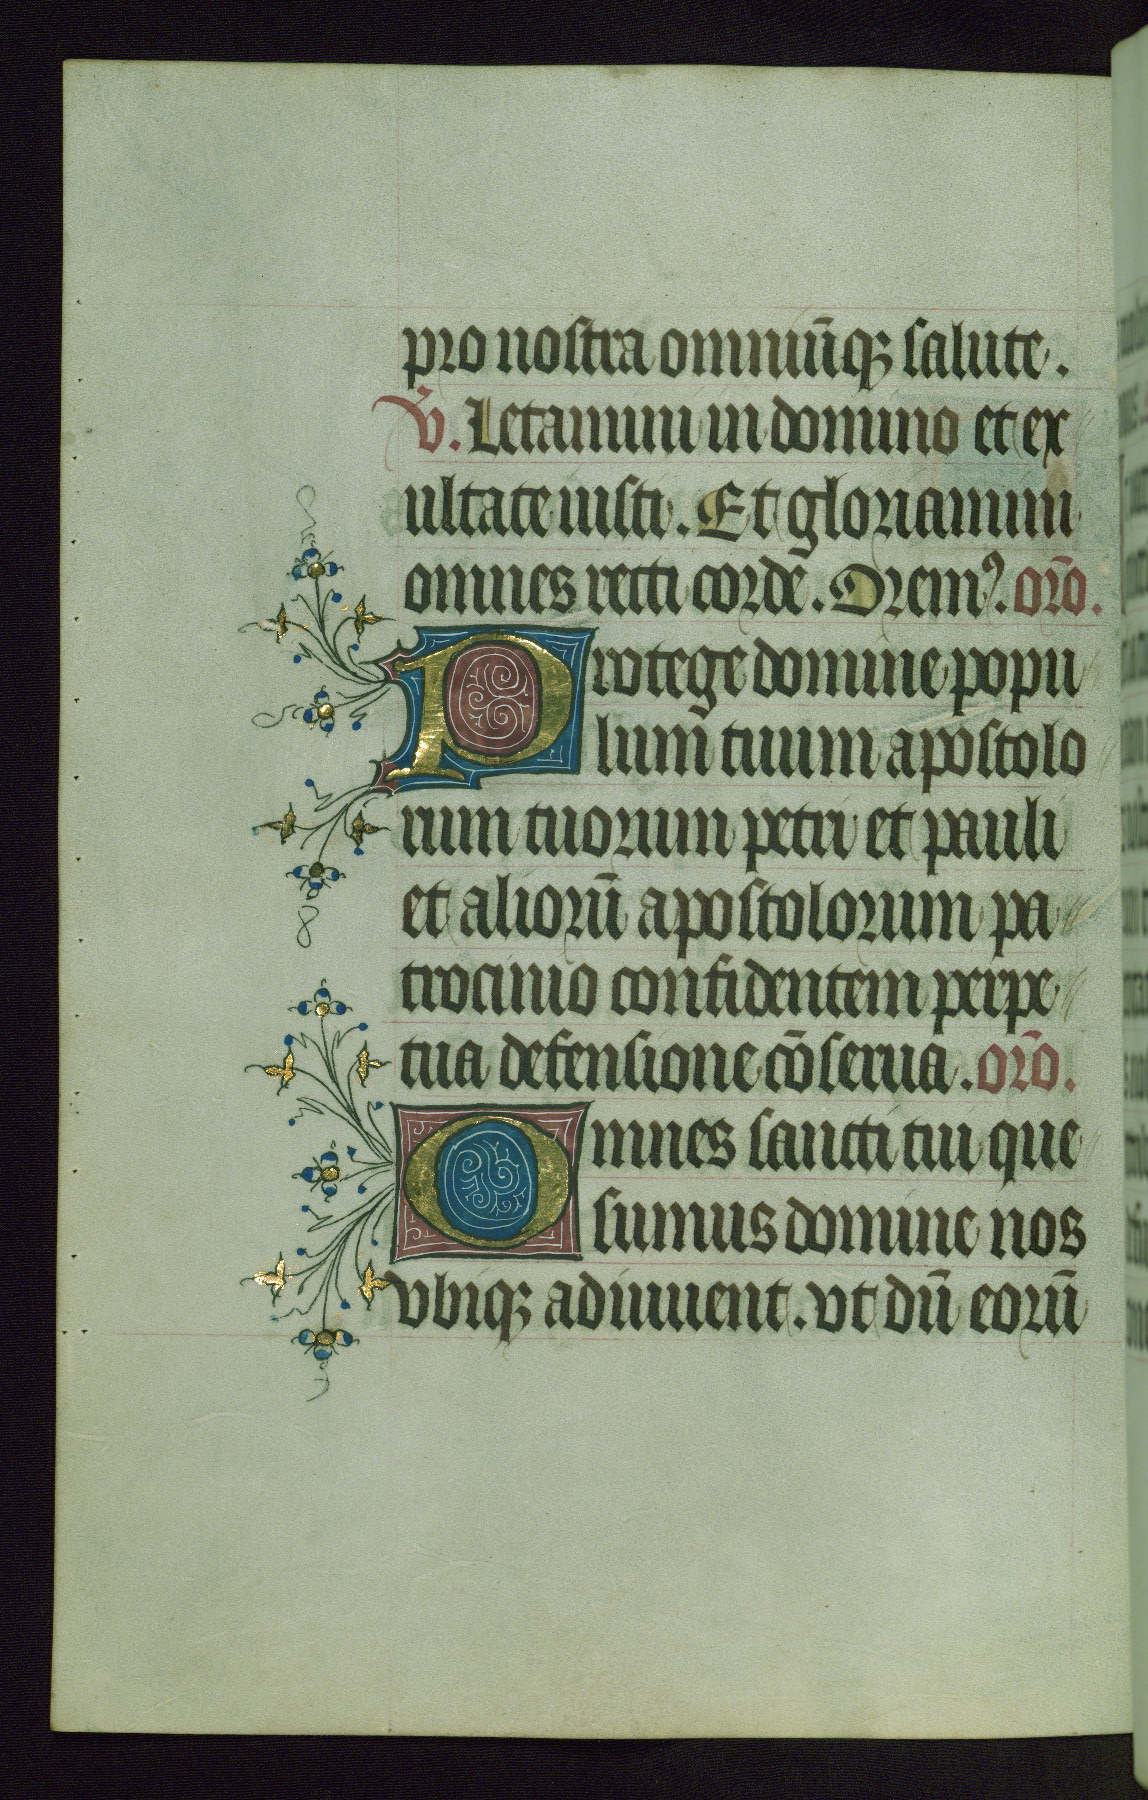 pro nostra omniūqꝫ salute.
V̄. Letamini in domino et ex
ultate iusti. Et gloriamini
omnes recti cordẽ. Oremꝰ. orō.
Protege domine popu
lum tuum apostolo
rum tuorum petri et pauli
et aliorū apostolorum pa
trocinio confidentem perpe
tua defensione cōserua. orō.
Omnes sancti tui que
sumus domine nos
vbiqꝫ adiuuent. vt dū eorū